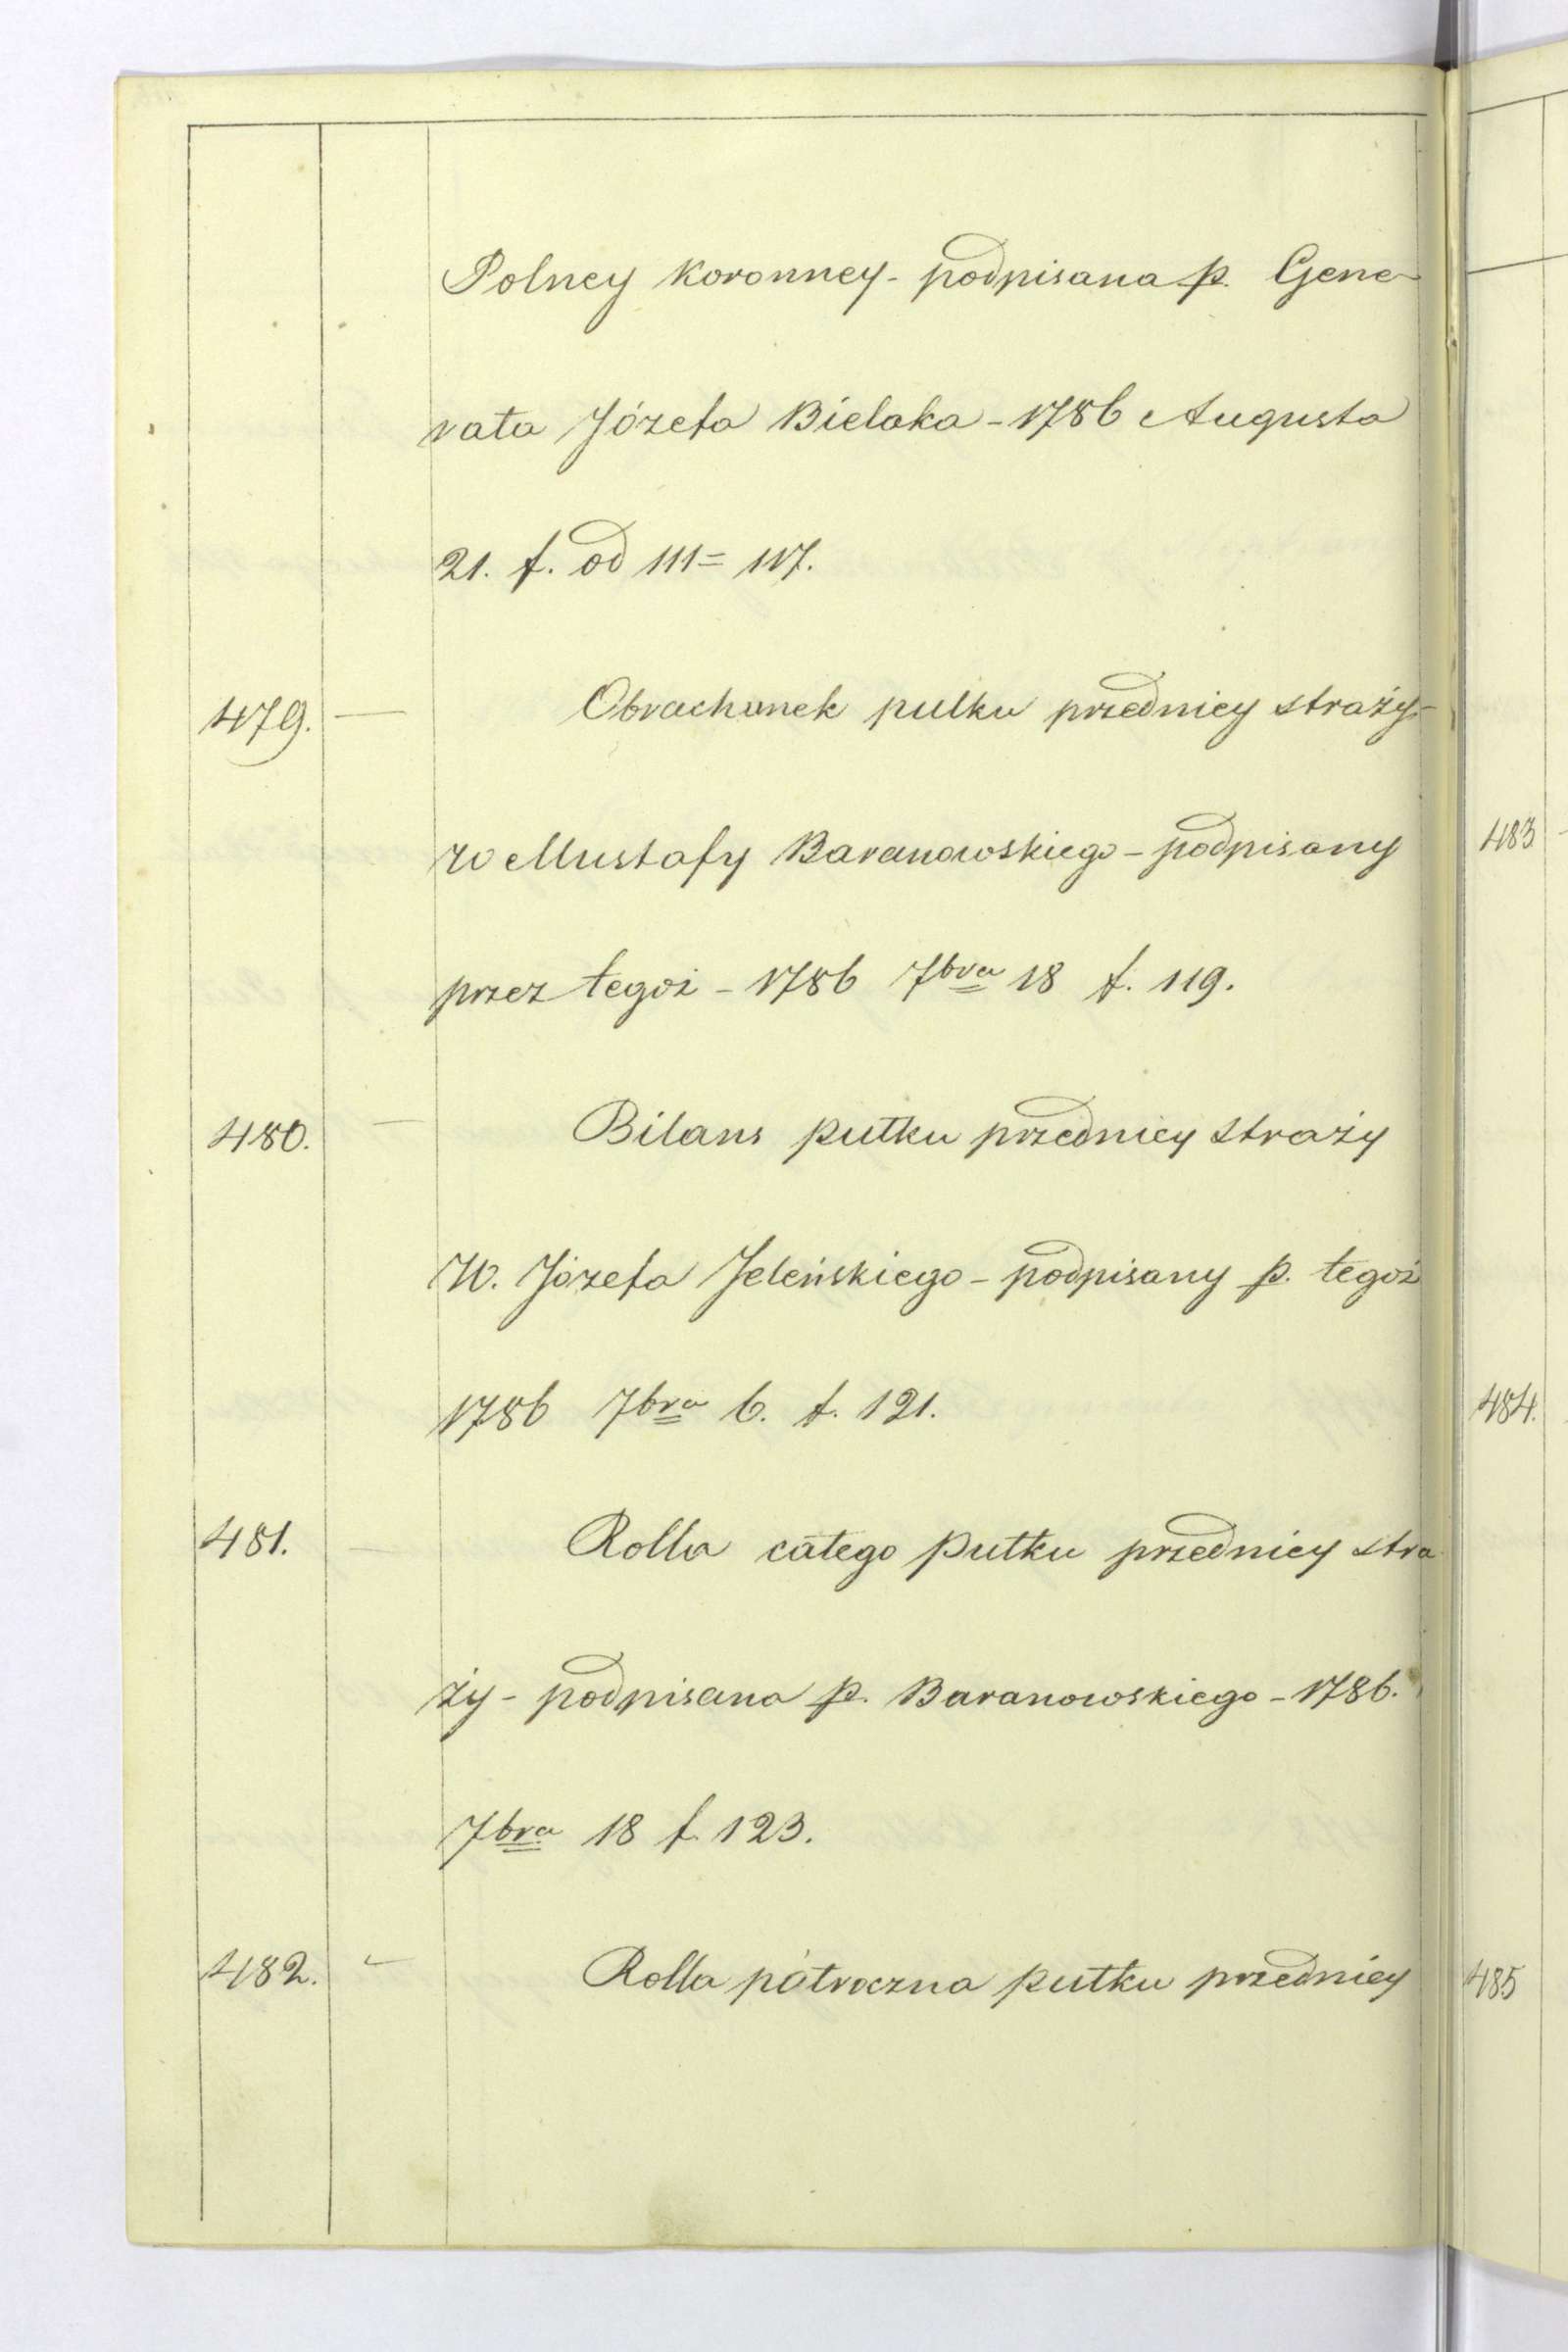 Polney Koronney - podpisana p. Gene-
rała Józefa Bielaka - 1786 Augusta
21. f. od 111 = 117.
479. — Obrachunek pulku przedniey straży -
W Mustafy Baranowskiego - podpisany
przez tegoż - 1786 7bra 18 f. 119.
480. — Bilans pułku przedniey straży
W. Józefa Jeleńskiego - podpisany p. tegoż
1786 7bra 6. f. 121.
481. — Rolla całego pułku przedniey stra
ży - podpisana p. Baranowskiego - 1786.
7bra 18 f. 123.
482. — Rolla półroczna pułku przedniey
483
484.
485